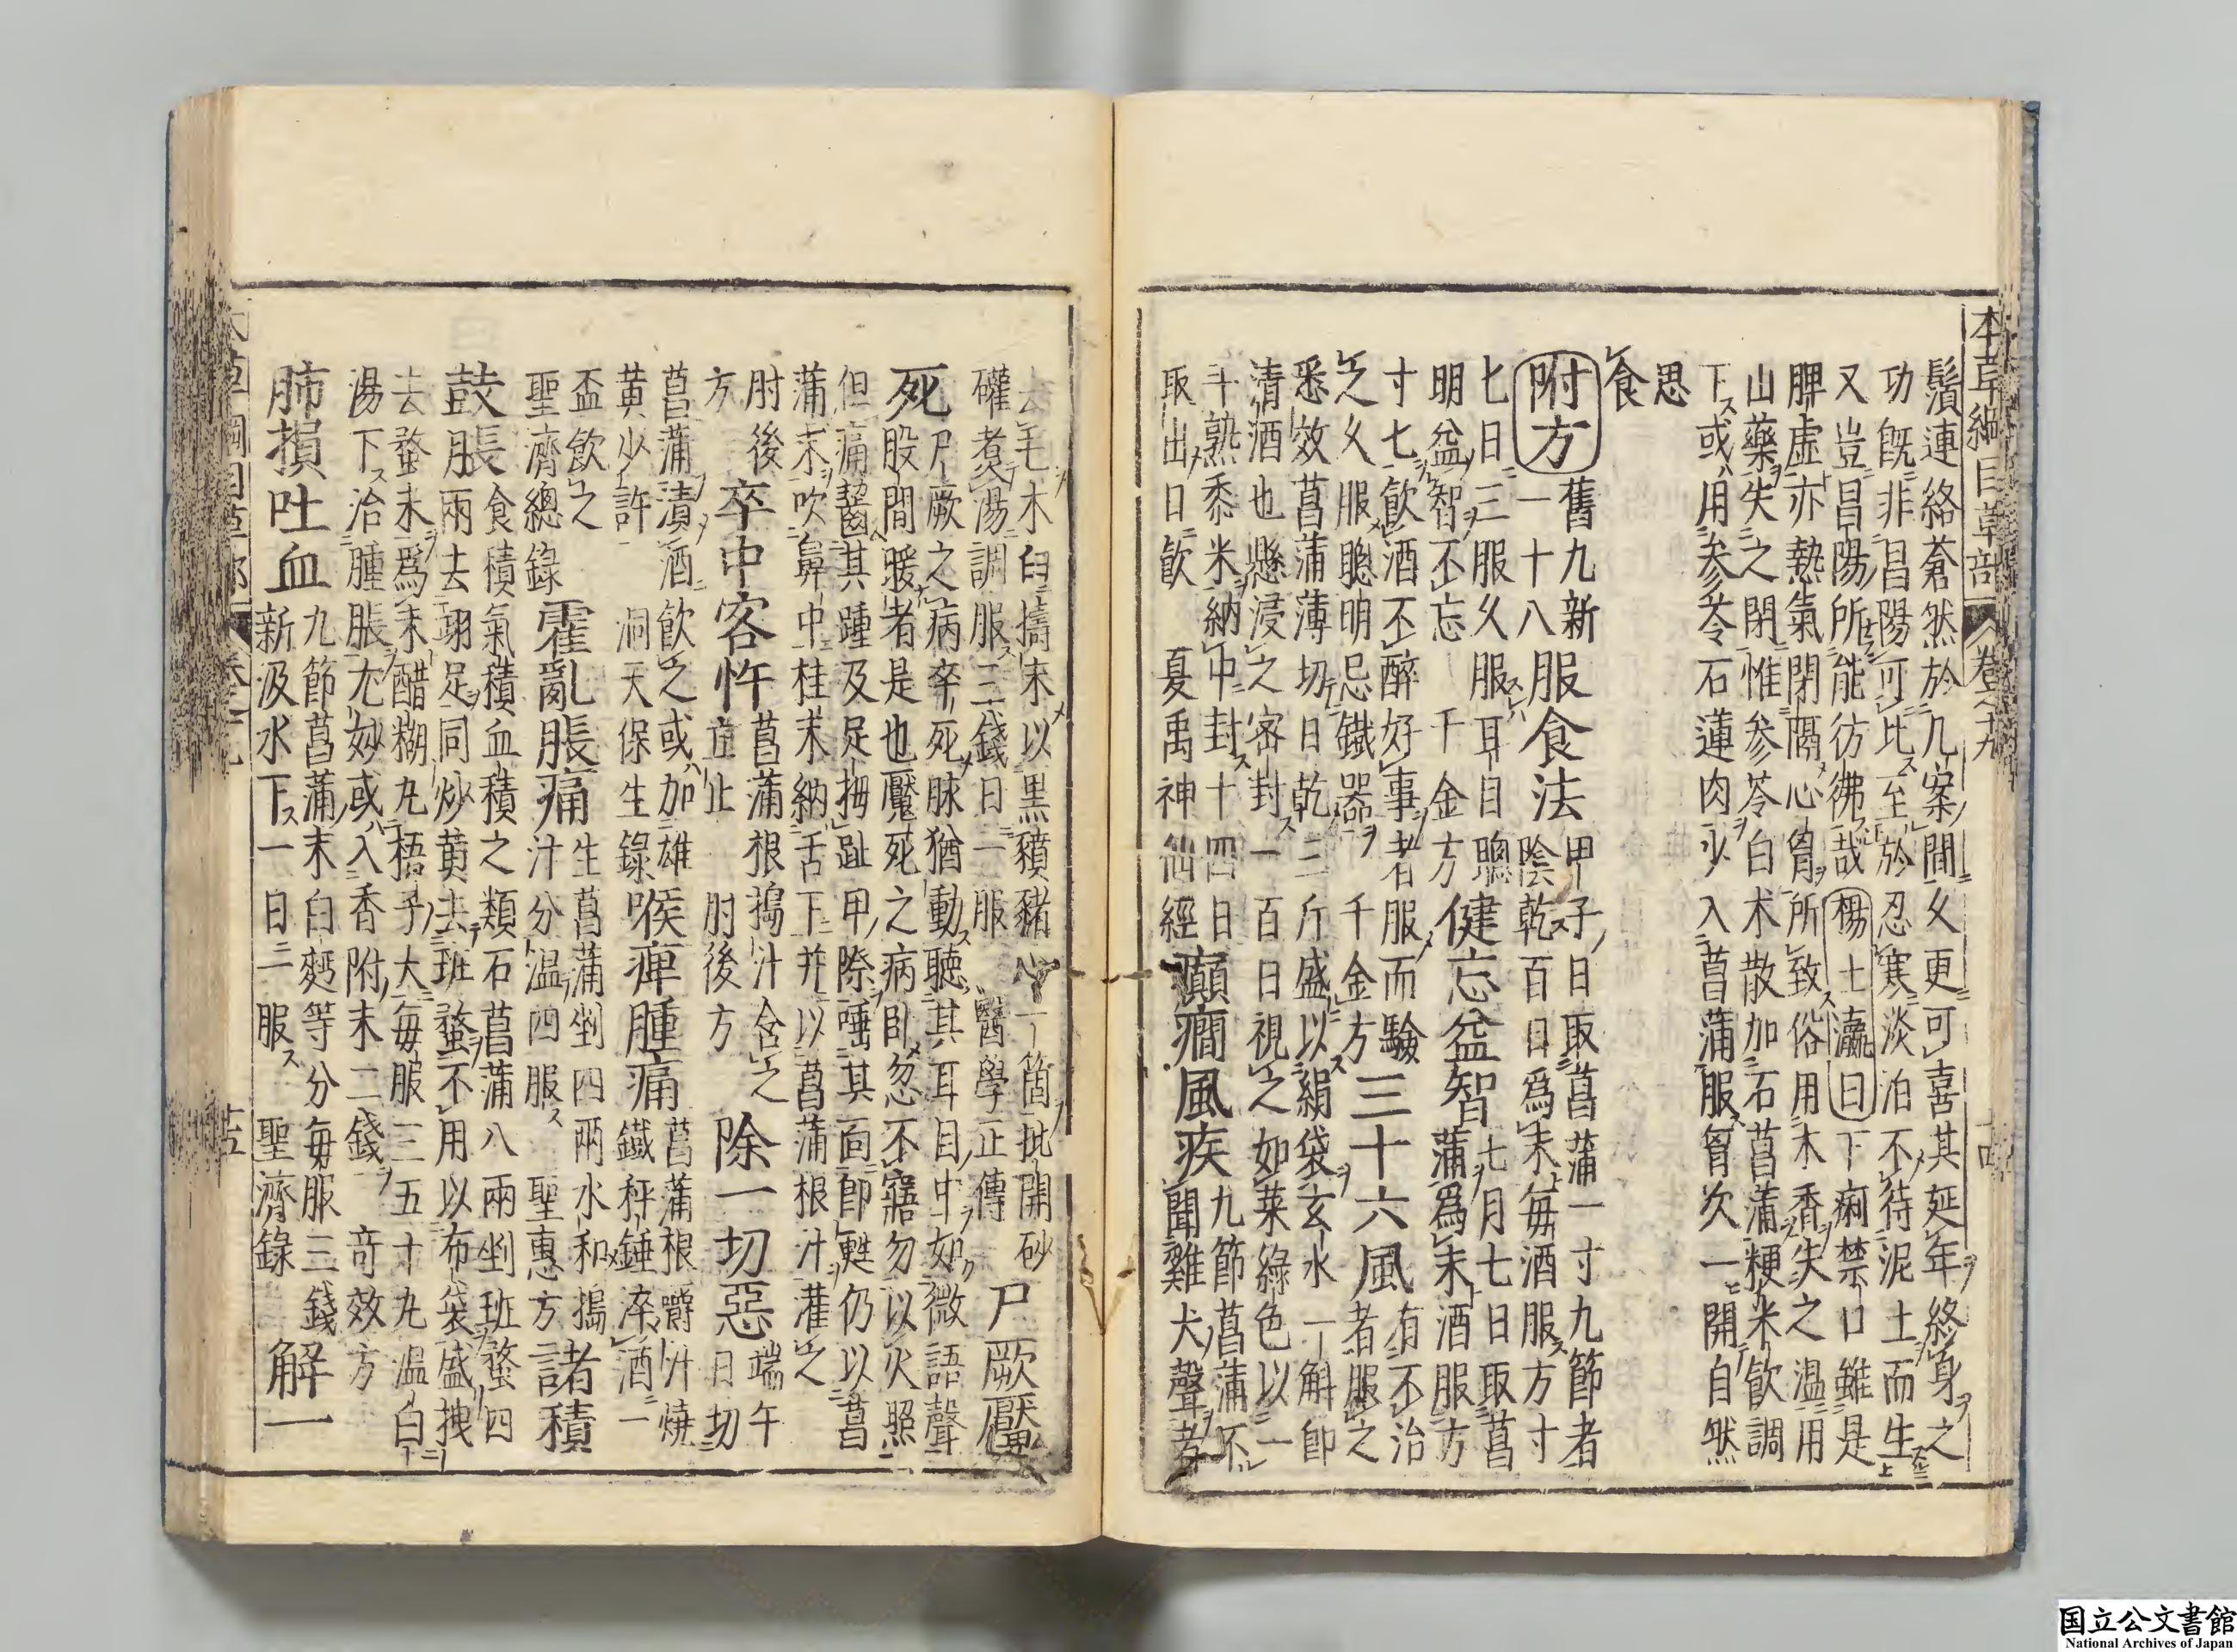 本草綱目草部 卷之十九
鬚連絡蒼然於几案間久更可喜其延年終身之
功旣非昌陽可比至於忍寒淡泊不待泥土而生
又豈昌陽所能彷彿哉楊士瀛曰下痢禁口雖是
脾虛亦熱氣閉隔心胷所致俗用木香失之温用
山藥失之閉惟参苓白术散加石菖蒲粳米飲調
下或用参苓石蓮肉少入菖蒲服胷次一開自然
思
食
附方 舊九新一十八 服食法 甲子日取菖蒲一寸九節者陰乾百日爲末毎酒服方寸
七日三服久服耳目聰明益智不忘 千金方 健忘益智 七月七日取菖蒲爲末酒服方
寸七飲酒不醉好事者服而驗之久服聰明忌鐵器 千金方 三十六風 有不治者服之
悉效菖蒲薄切日乾三斤盛以絹袋玄水一斛即清酒也懸浸之密封一百日視之如菜綠色以一
斗熟黍米納中封十四日取出日飲 夏禹神仙經 癲癇風疾 九節菖蒲不聞雞犬聲者
去毛木臼擣末以黑豶豬心一箇批開砂礶煮湯調服三錢日二服 醫學正傳 尸厥魘
死 尸厥之病卒死脉猶動聽其耳目中如微語聲股間暖者是也魘死之病卧忽不寤勿以火照
但痛齧其踵及足拇趾甲際唾其面即甦仍以菖蒲末吹鼻中桂末納舌下并以菖蒲根汁灌之
肘後方 卒中客忤 菖蒲根搗汁含之立止 肘後方 除一切惡 端午日切
菖蒲漬酒飲之或加雄黄少許 洞天保生錄 喉痺腫痛 菖蒲根嚼汁燒鐵秤錘淬酒一
盃飲之 聖濟總錄 霍亂脹痛 生菖蒲剉四兩水和搗汁分温四服 聖惠方 諸積
鼓脹 食積氣積血積之類石菖蒲八兩剉班蝥四兩去翅足同炒黄去班蝥不用以布袋盛拽
去蝥末爲末醋糊丸梧子大毎服三五十丸温白湯下治腫脹尤妙或入香附末二錢 奇效方
肺損吐血 九節菖蒲末白麪等分毎服三錢新汲水下一日二服 聖濟錄 解一
国立公文書館
National Archives of Japan